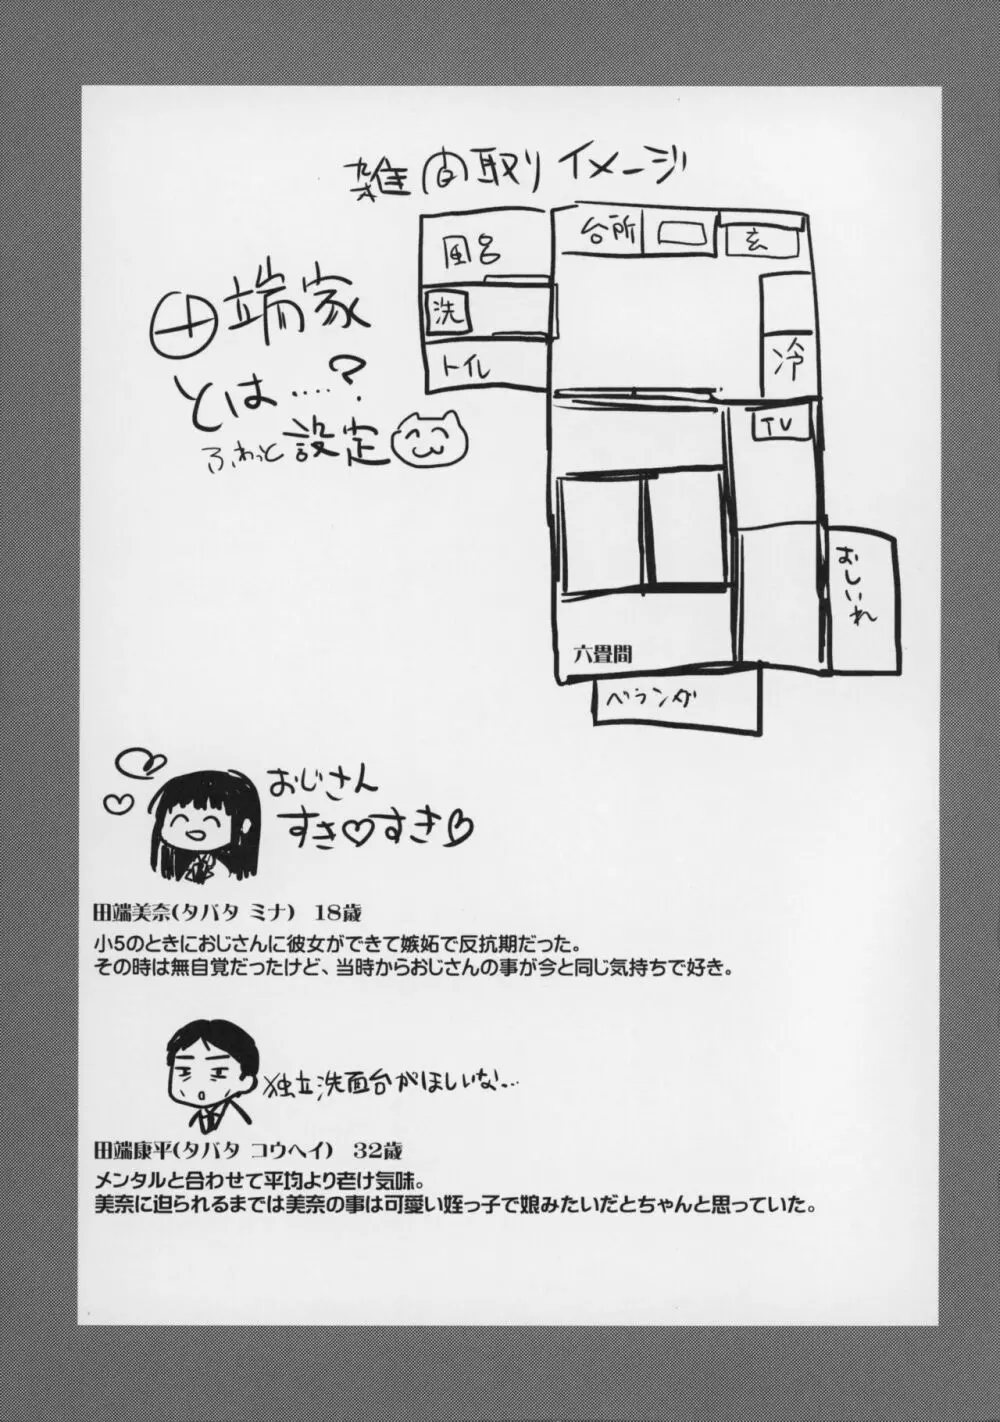 雑間取りイメージ
田端家
とは……?
ふわっと設定
風呂
洗
トイレ
台所
玄
冷
TV
おしいれ
六畳間
ベランダ
おじさん
すき♡すき♡
田端美奈(タバタ ミナ) 18歳
小5のときにおじさんに彼女ができて嫉妬で反抗期だった。
その時は無自覚だったけど、当時からおじさんの事が今と同じ気持ちで好き。
独立洗面台がほしいな…
田端康平(タバタ コウヘイ) 32歳
メンタルと合わせて平均より老け気味。
美奈に迫られるまでは美奈の事は可愛い姪っ子で娘みたいだとちゃんと思っていた。